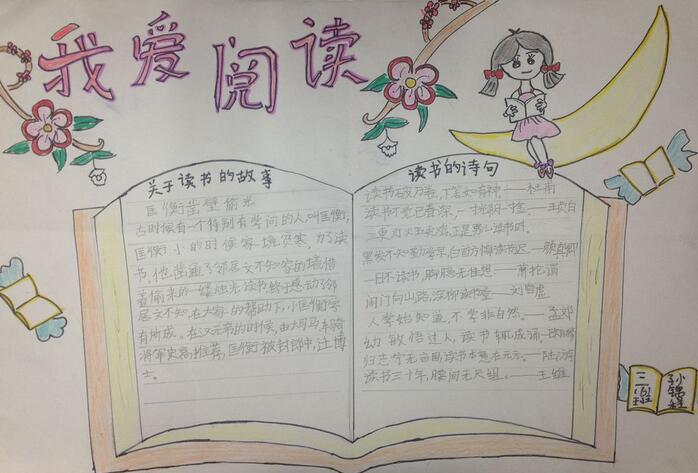 我爱阅读
关于读书的故事
匡衡凿壁偷光
古时候有一个特别有学问的人,叫匡衡,
匡衡小的时候家境贫寒,为了读
书,他凿通了邻居文不知家的墙,借
着偷来的一缕烛光读书,终于感动了邻
居文不知,在大家的帮助下,小匡衡学
有所成。在汉元帝的时候,由大司马车骑
将军史高推荐,匡衡被封郎中,迁博
士。
读书的诗句
读书破万卷,下笔如有神,——杜甫
读书不觉已春深,一寸光阴一寸金。——王贞白
三更灯火五更鸡,正是男儿读书时,
黑发不知勤学早,白首方悔读书迟。——颜真卿
一日不读书,胸臆无佳想。——萧抡谓
闲门向山路,深柳读书堂——刘昚虚
人学始知道,不学非自然。——孟郊
幼敏悟过人,读书辄成诵。——欧阳修
归志宁无五亩园,读书本意在元元。——陆游
读书三十年,腰间无尺组。——王维
三(1)班
孙